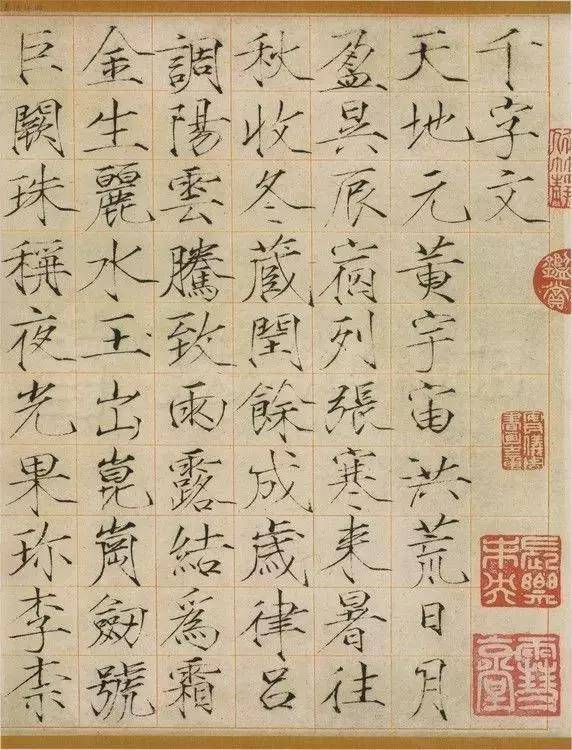 千字文
天地元黃宇宙洪荒日月
盈昃辰宿列張寒来暑往
秋收冬蔵閏餘成歲律呂
調陽雲騰致雨露結爲霜
金生麗水玉出崑崗劒號
巨闕珠稱夜光果珎李柰
鑑賞
長樂未央